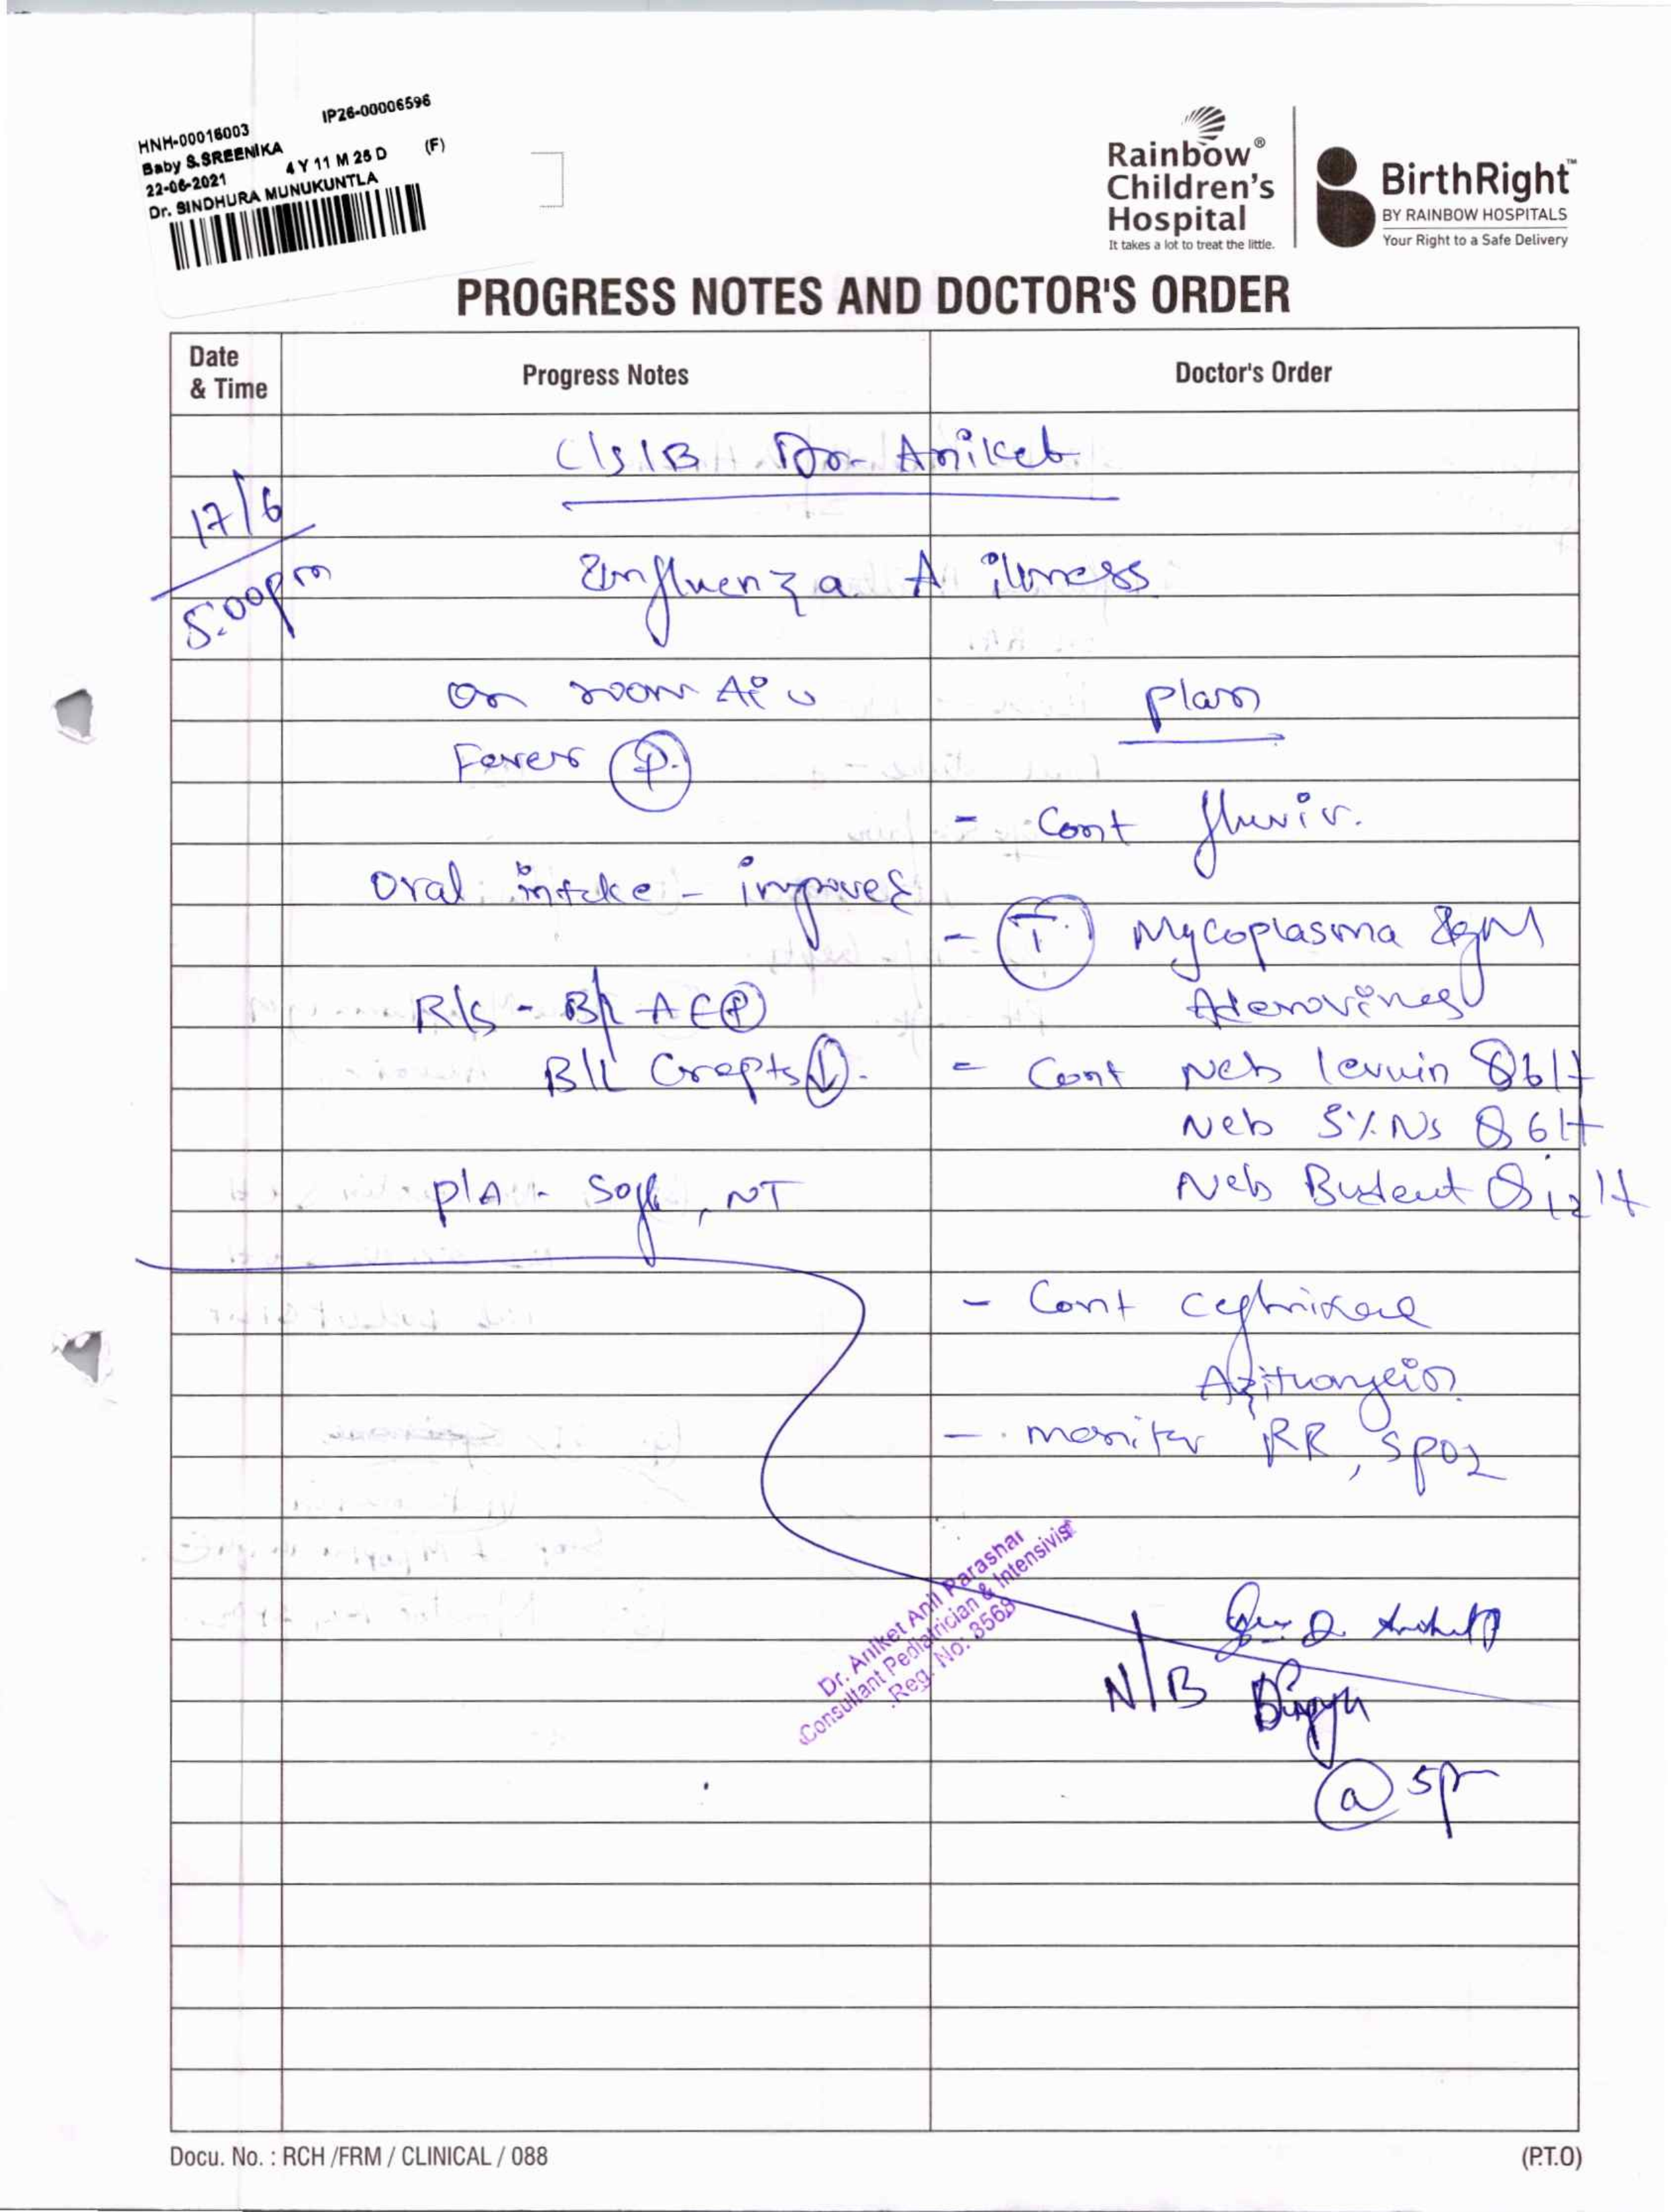 HNH-00016003 IP26-00006596
Baby S.SREENIKA
22-06-2021 4 Y 11 M 25 D (F)
Dr. SINDHURA MUNUKUNTLA
Rainbow®
Children's
Hospital
It takes a lot to treat the little.
BirthRight™
BY RAINBOW HOSPITALS
Your Right to a Safe Delivery
PROGRESS NOTES AND DOCTOR'S ORDER
Date
& Time
Progress Notes
Doctor's Order
C/S/B Dr. Aniket
17/6
5:00pm
Influenza A illness
on room Air
Fever (P)
plan
- Cont fluvir.
Oral intake - improved
- (T) Mycoplasma IgM
Adenovirus
R/s - B/L AE(P)
B/L Crepts (↓).
- Cont Neb levwin Q6H
Neb 3% NS Q6H
P/A - Soft, NT
Neb Budecut Q12H
- Cont ceftriaxone
Azithromycin
- monitor RR, SpO2
Dr. Aniket Anil Parashar
Consultant Pediatrician & Intensivist
Reg. No: 3568
N/B
@ 5pm
Docu. No. : RCH /FRM / CLINICAL / 088
(P.T.O)